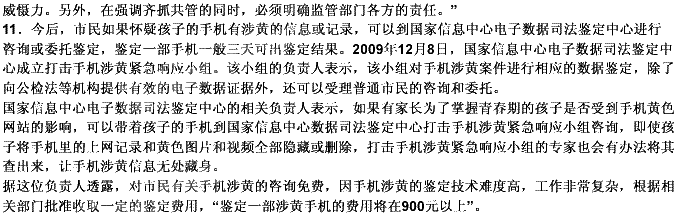 威慑力。另外，在强调齐抓共管的同时，必须明确监管部门各方的责任。”
11．今后，市民如果怀疑孩子的手机有涉黄的信息或记录，可以到国家信息中心电子数据司法鉴定中心进行
咨询或委托鉴定，鉴定一部手机一般三天可出鉴定结果。2009年12月8日，国家信息中心电子数据司法鉴定中
心成立打击手机涉黄紧急响应小组。该小组的负责人表示，该小组对手机涉黄案件进行相应的数据鉴定，除了
向公检法等机构提供有效的电子数据证据外，还可以受理普通市民的咨询和委托。
国家信息中心电子数据司法鉴定中心的相关负责人表示，如果有家长为了掌握青春期的孩子是否受到手机黄色
网站的影响，可以带着孩子的手机到国家信息中心数据司法鉴定中心打击手机涉黄紧急响应小组咨询，即使孩
子将手机里的上网记录和黄色图片和视频全部隐藏或删除，打击手机涉黄紧急响应小组的专家也会有办法将其
查出来，让手机涉黄信息无处藏身。
据这位负责人透露，对市民有关手机涉黄的咨询免费，因手机涉黄的鉴定技术难度高，工作非常复杂，根据相
关部门批准收取一定的鉴定费用，“鉴定一部涉黄手机的费用将在900元以上”。